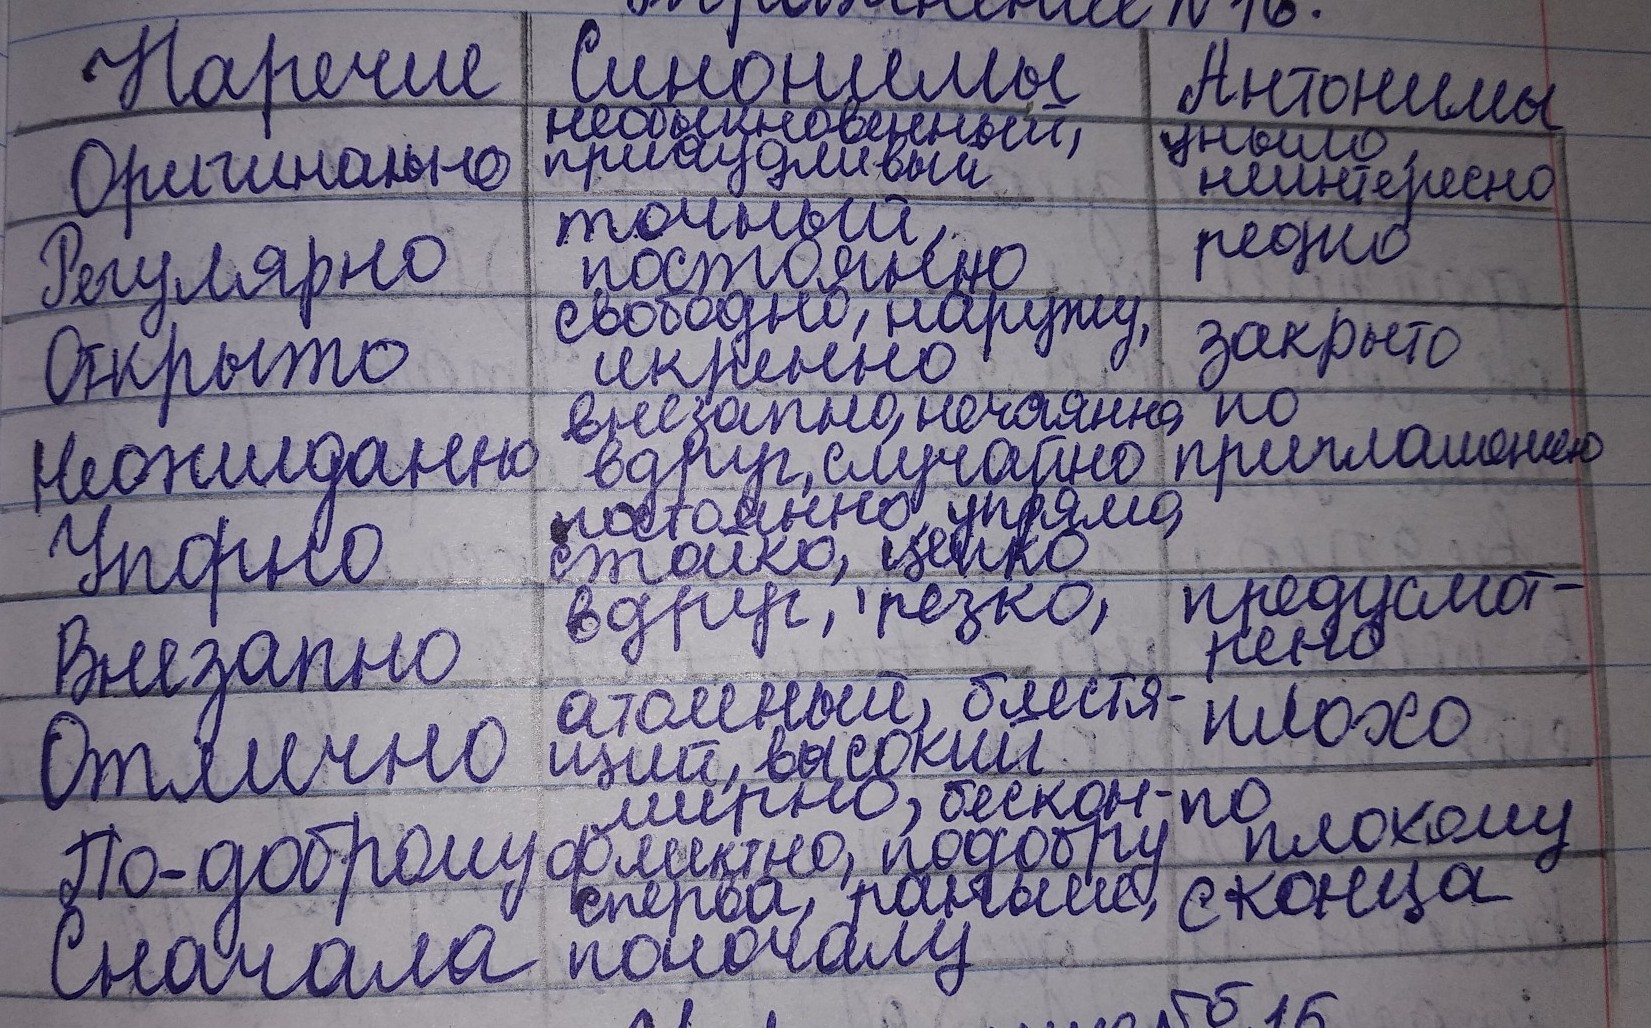 Упражнение №16.
Наречие Синонимы Антонимы
необыкновенный, уныло,
Оригинально причудливый неинтересно
точный, редко
Регулярно постоянно
свободно, наружу,
Открыто икренно закрыто
внезапно, нечаянно, по
Неожиданно вдруг, случайно приглашению
постоянно, упрямо,
Упорно стойко, цепко
вдруг, резко, предусмот-
Внезапно нено
атомный, блестя- плохо
Отлично щий, высокий
мирно, бескон- по
По-доброму фликтно, подобру плохому
сперва, раньше, с конца
Сначала поночалу